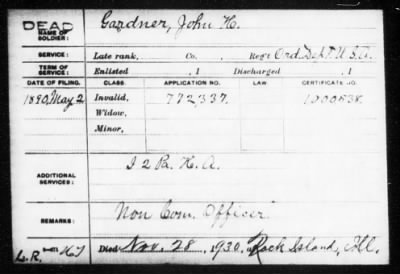 DEAD
NAME OF SOLDIER: Gardner, John H.
SERVICE: Late rank, Co. Reg't Ord. Dept. U.S.A.
TERM OF SERVICE: Enlisted , 1 Discharged , 1
DATE OF FILING. CLASS. APPLICATION NO. LAW. CERTIFICATE NO.
1890, May 2 Invalid, 772337. 1000538.
Widow,
Minor,
ADDITIONAL SERVICES: I 2 R. H. A.
REMARKS: Non Com. Officer
Died Nov. 28, 1930, at Rock Island, Ill.